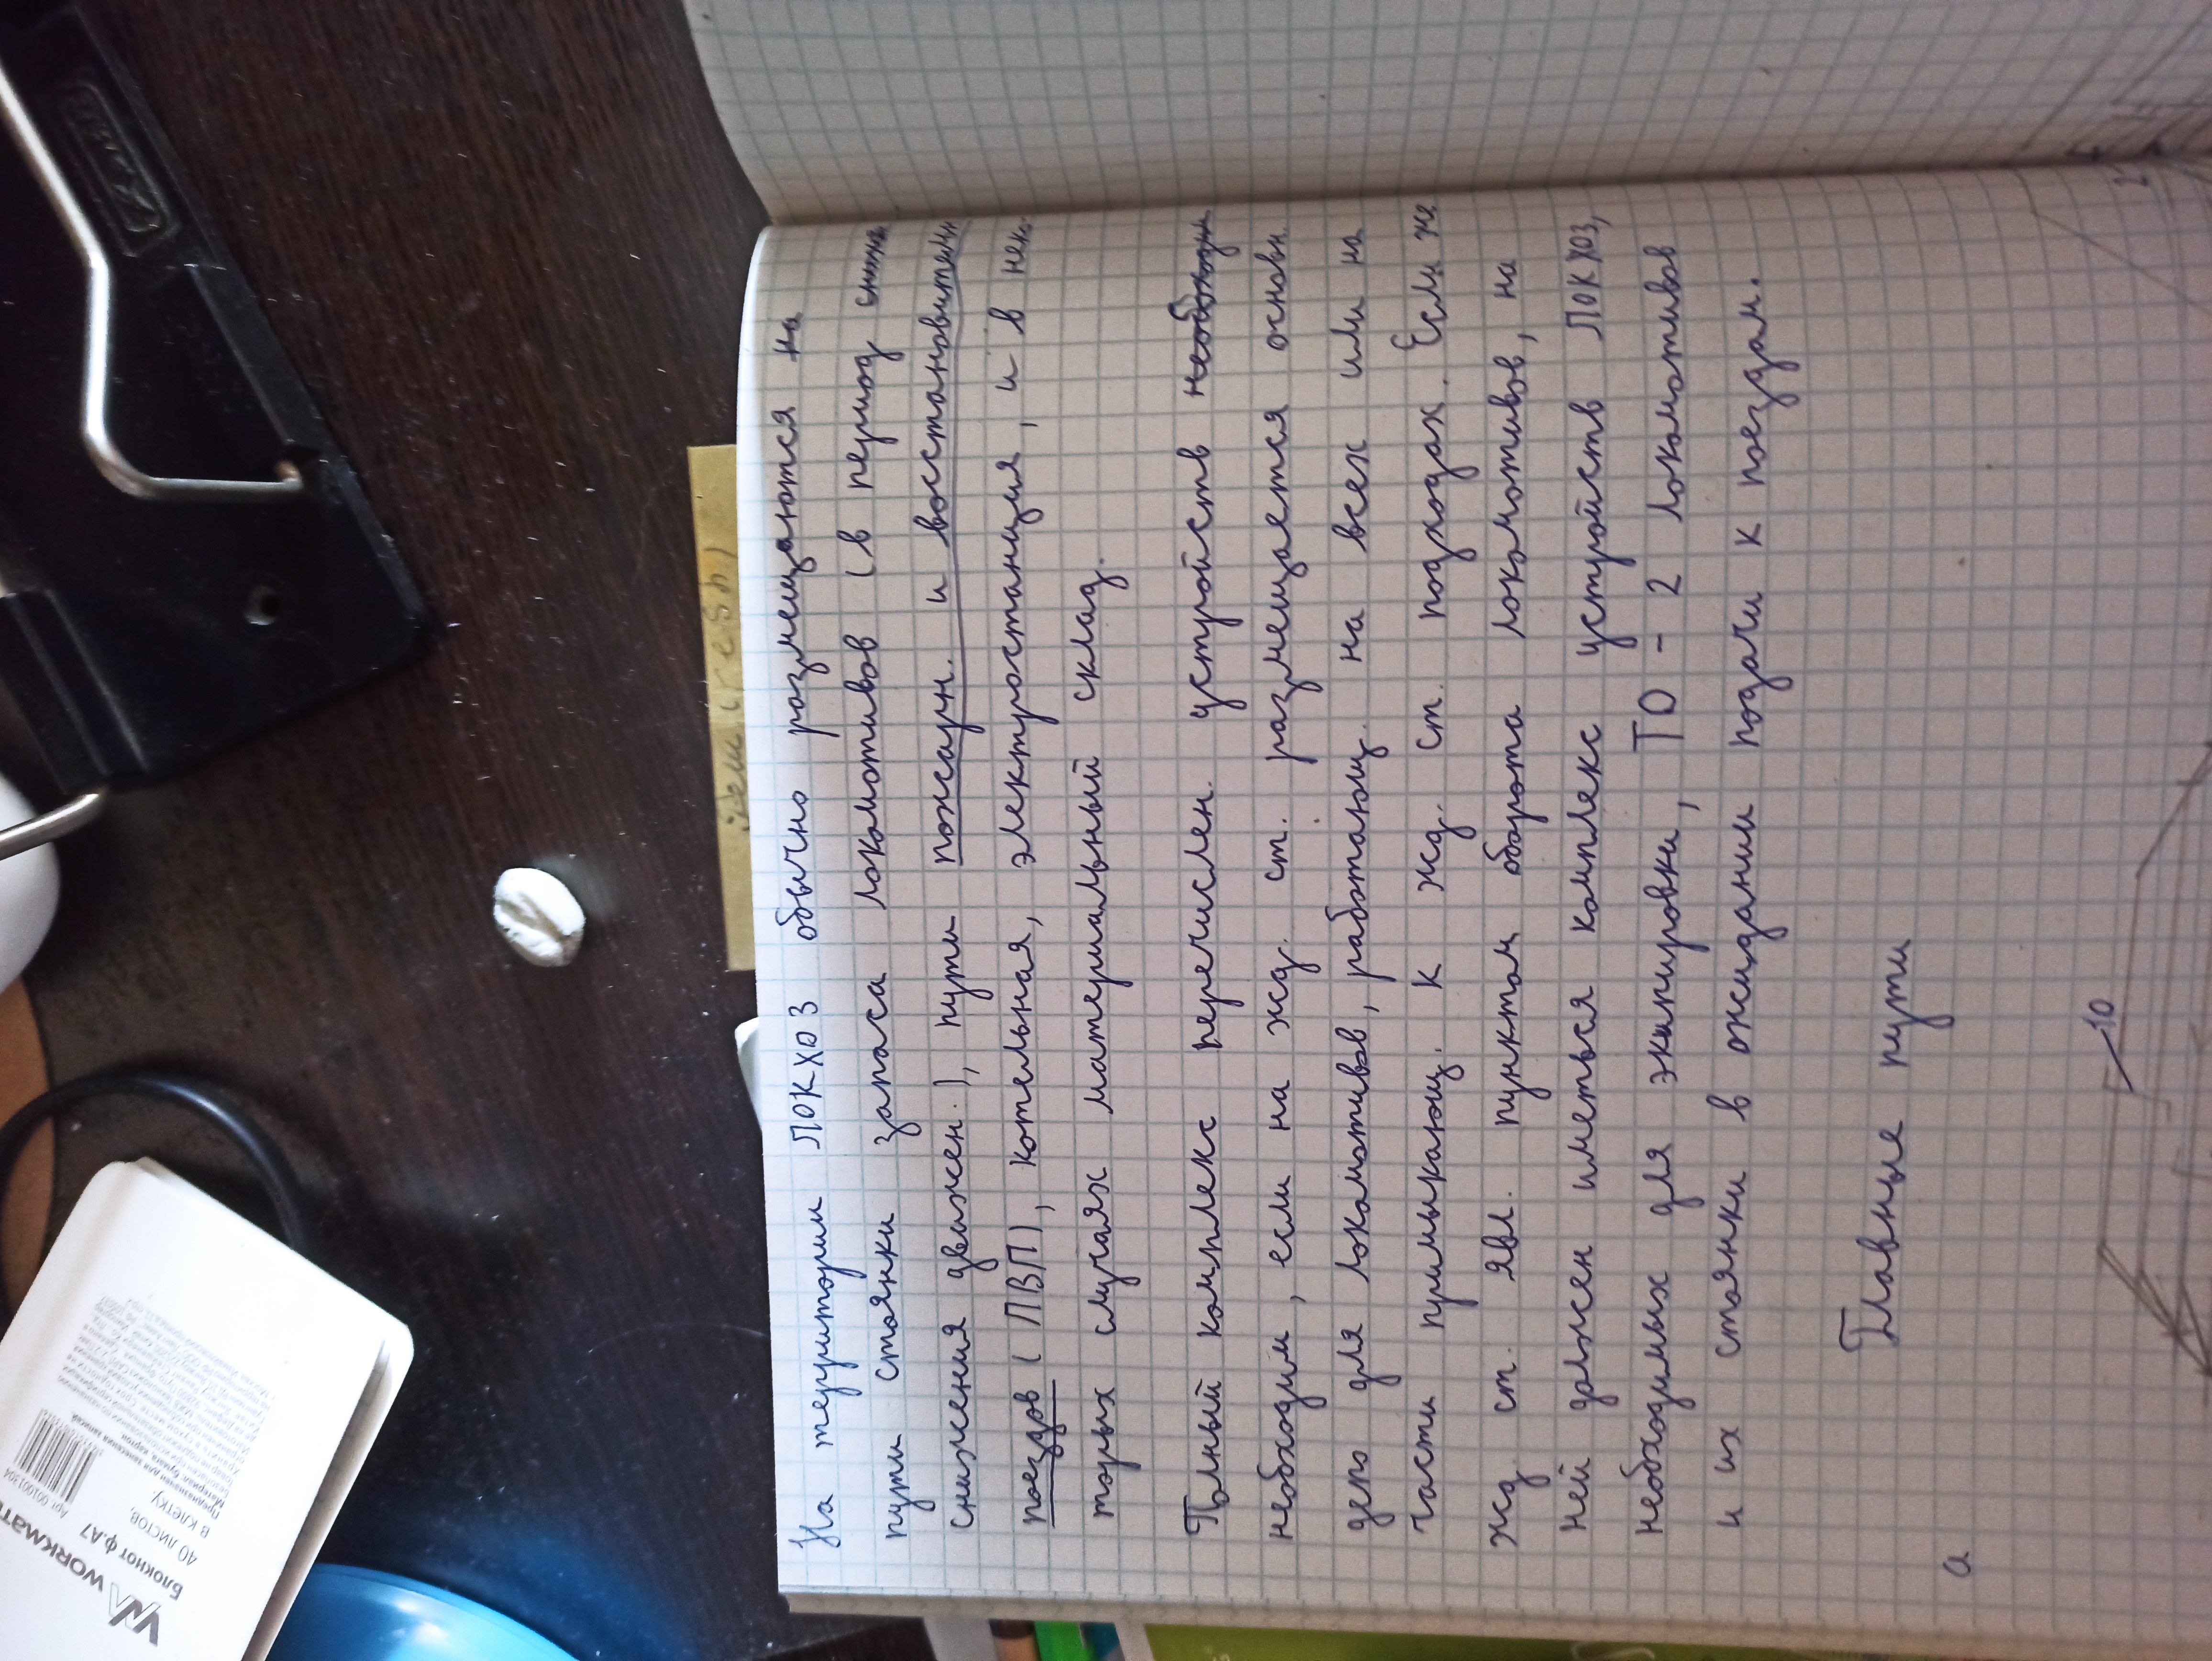 На територии ЛОКХОЗ обычно размещаются на
пути стоянки запаса локомотивов (в период
снижения движен.), пути пожарн. и восстановительн
поездов (ПВП), котельная, электростанция, и в нек
торых случаях материальный склад.
Полный комплекс перечислен. устройств необходи
необходим, если на жд. ст. размещается основн.
депо для локомотивов, работающ. на всех или на
части примыкающ. к жд. ст. подходах. Если же
жд ст. явл. пунктом оборота локомотивов, на
ней должен иметься комплекс устройств ЛОКХОЗ,
необходимых для экипировки, ТО - 2 локомотивов
и их стоянки в ожидании подачи к поездам.
Главные пути
а
10
WORKMATE
Блокнот ф.А7
40 листов,
в клетку.
Арт. 001001304